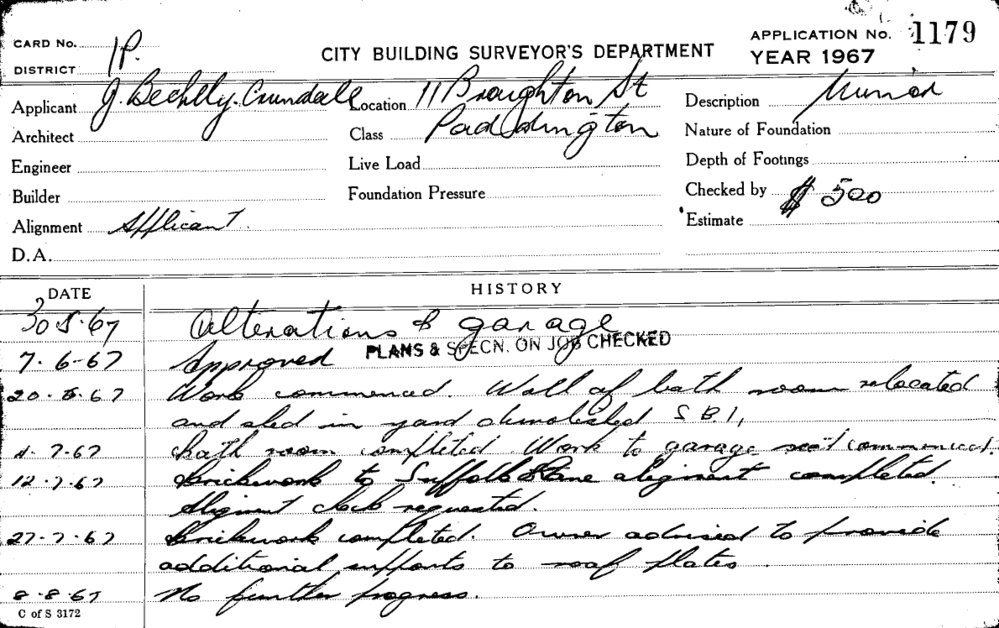 CARD No. 1P.
DISTRICT
CITY BUILDING SURVEYOR'S DEPARTMENT
APPLICATION No. 1179
YEAR 1967
Applicant J. Bechlly. Crundall Location 11 Broughton St Description Minor
Architect Class Paddington Nature of Foundation
Engineer Live Load Depth of Footings
Builder Foundation Pressure Checked by
Alignment Applicant. Estimate $500
D.A.
DATE HISTORY
30.5.67 Alterations & garage
7.6-67 Approved PLANS & SPECN. ON JOB CHECKED
20.6.67 Work commenced. Wall of bath room relocated
and shed in yard demolished S.B.1,
4.7.67 Bath room completed. Work to garage not commenced.
12.7.67 Brickwork to Suffolk Lane alignment completed.
Alignment check requested.
27.7.67 Brickwork completed. Owner advised to provide
additional supports to roof plates.
8.8.67 No further progress.
C of S 3172